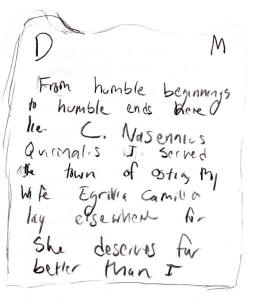 D M
From humble beginnings
to humble ends here
lie C. Nasennius
Quirinalis I served
the town of Ostia my
wife Egrilia Camilla
lay elsewhere for
She deserves far
better than I